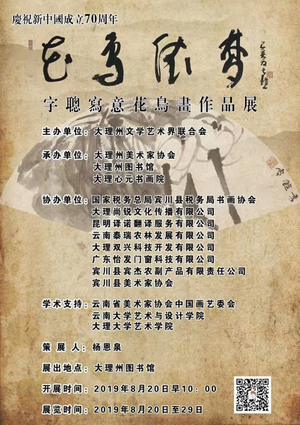 慶祝新中國成立70周年
花鸟依梦
字聰寫意花鳥畫作品展
主办单位：大理州文学艺术界联合会
承办单位：大理州美术家协会
大理州图书馆
大理心元书画院
协办单位：国家税务总局宾川县税务局书画协会
大理尚锐文化传播有限公司
昆明译诺翻译服务有限公司
云南泰瑞农林发展有限公司
大理双兴科技开发有限公司
广东怡发门窗科技有限公司
宾川县宾杰农副产品有限责任公司
宾川县美术家协会
学术支持：云南省美术家协会中国画艺委会
云南大学艺术与设计学院
大理大学艺术学院
策展人：杨恩泉
展出地点：大理州图书馆
开展时间：2019年8月20日早10：00
展览时间：2019年8月20日至29日